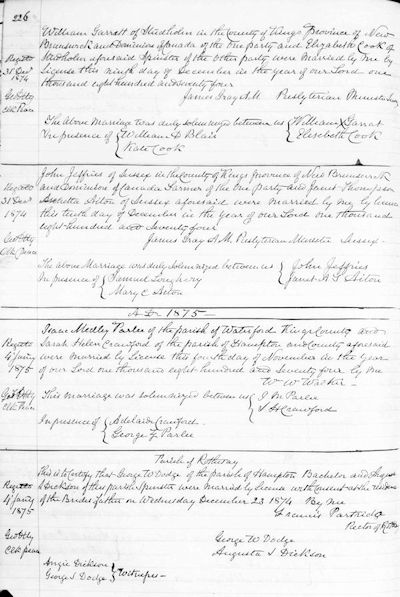 226
William Garrett of Studholm in the County of Kings Province of New
Brunswick and Dominion of Canada of the One party and Elizabeth Cook of
Studholm aforesaid Spinster of the Other party were Married by Me by
License this Ninth day of December in the year of our Lord One
thousand eight hundred and seventy four
James Gray A M Presbyterian Minister
Registd
31 Decr
1874
Geo Otty
Clk Peace
The above Marriage was duly solemnized between us { William X Garrat
In presence of { William D Blair Elizebeth Cook
Kate Cook
John Jeffries of Sussex in the County of Kings Province of New Brunswick
and Dominion of Canada Farmer of the One party and Janet Thompson
Aiton of Sussex aforesaid were married by me by license
this tenth day of December in the year of Our Lord One thousand
eight hundred and Seventy four
James Gray A M. Presbyterian Minister Sussex
Registd
31 Decr
1874
Geo Otty
Clk Peace
The above Marriage was duly solemnized between us { John Jeffries
In presence of { Samuel Janet A T Aiton
Mary E Aiton
A D 1875
Isaac Medley Parlee of the parish of Waterford Kings County and
Sarah Helen Crawford of the parish of Hampton and County aforesaid
were married by License this fourth day of November in the year
of our Lord one thousand eight hundred and seventy four by me
W W
Registd
4 Jany
1875
Geo Otty
Clk Peace
This marriage was solemnized between us { I M Parlee
S H Crawford
In presence of { Adelaide Crawford
George F Parlee
Parish of Rothesay
This is to certify that George W Dodge of the parish of Hampton Bachelor and Augusta
S Dickson of this parish Spinster were married by License with Consent at the residence
of the Brides father on Wednesday December 23 1874 By me
Partridge
Rector of Rothesay
Registd
4 Jany
1875
Geo Otty
Clk peace
George W Dodge
Augusta S Dickson
Angie Dickson
George S Dodge } Witnesses